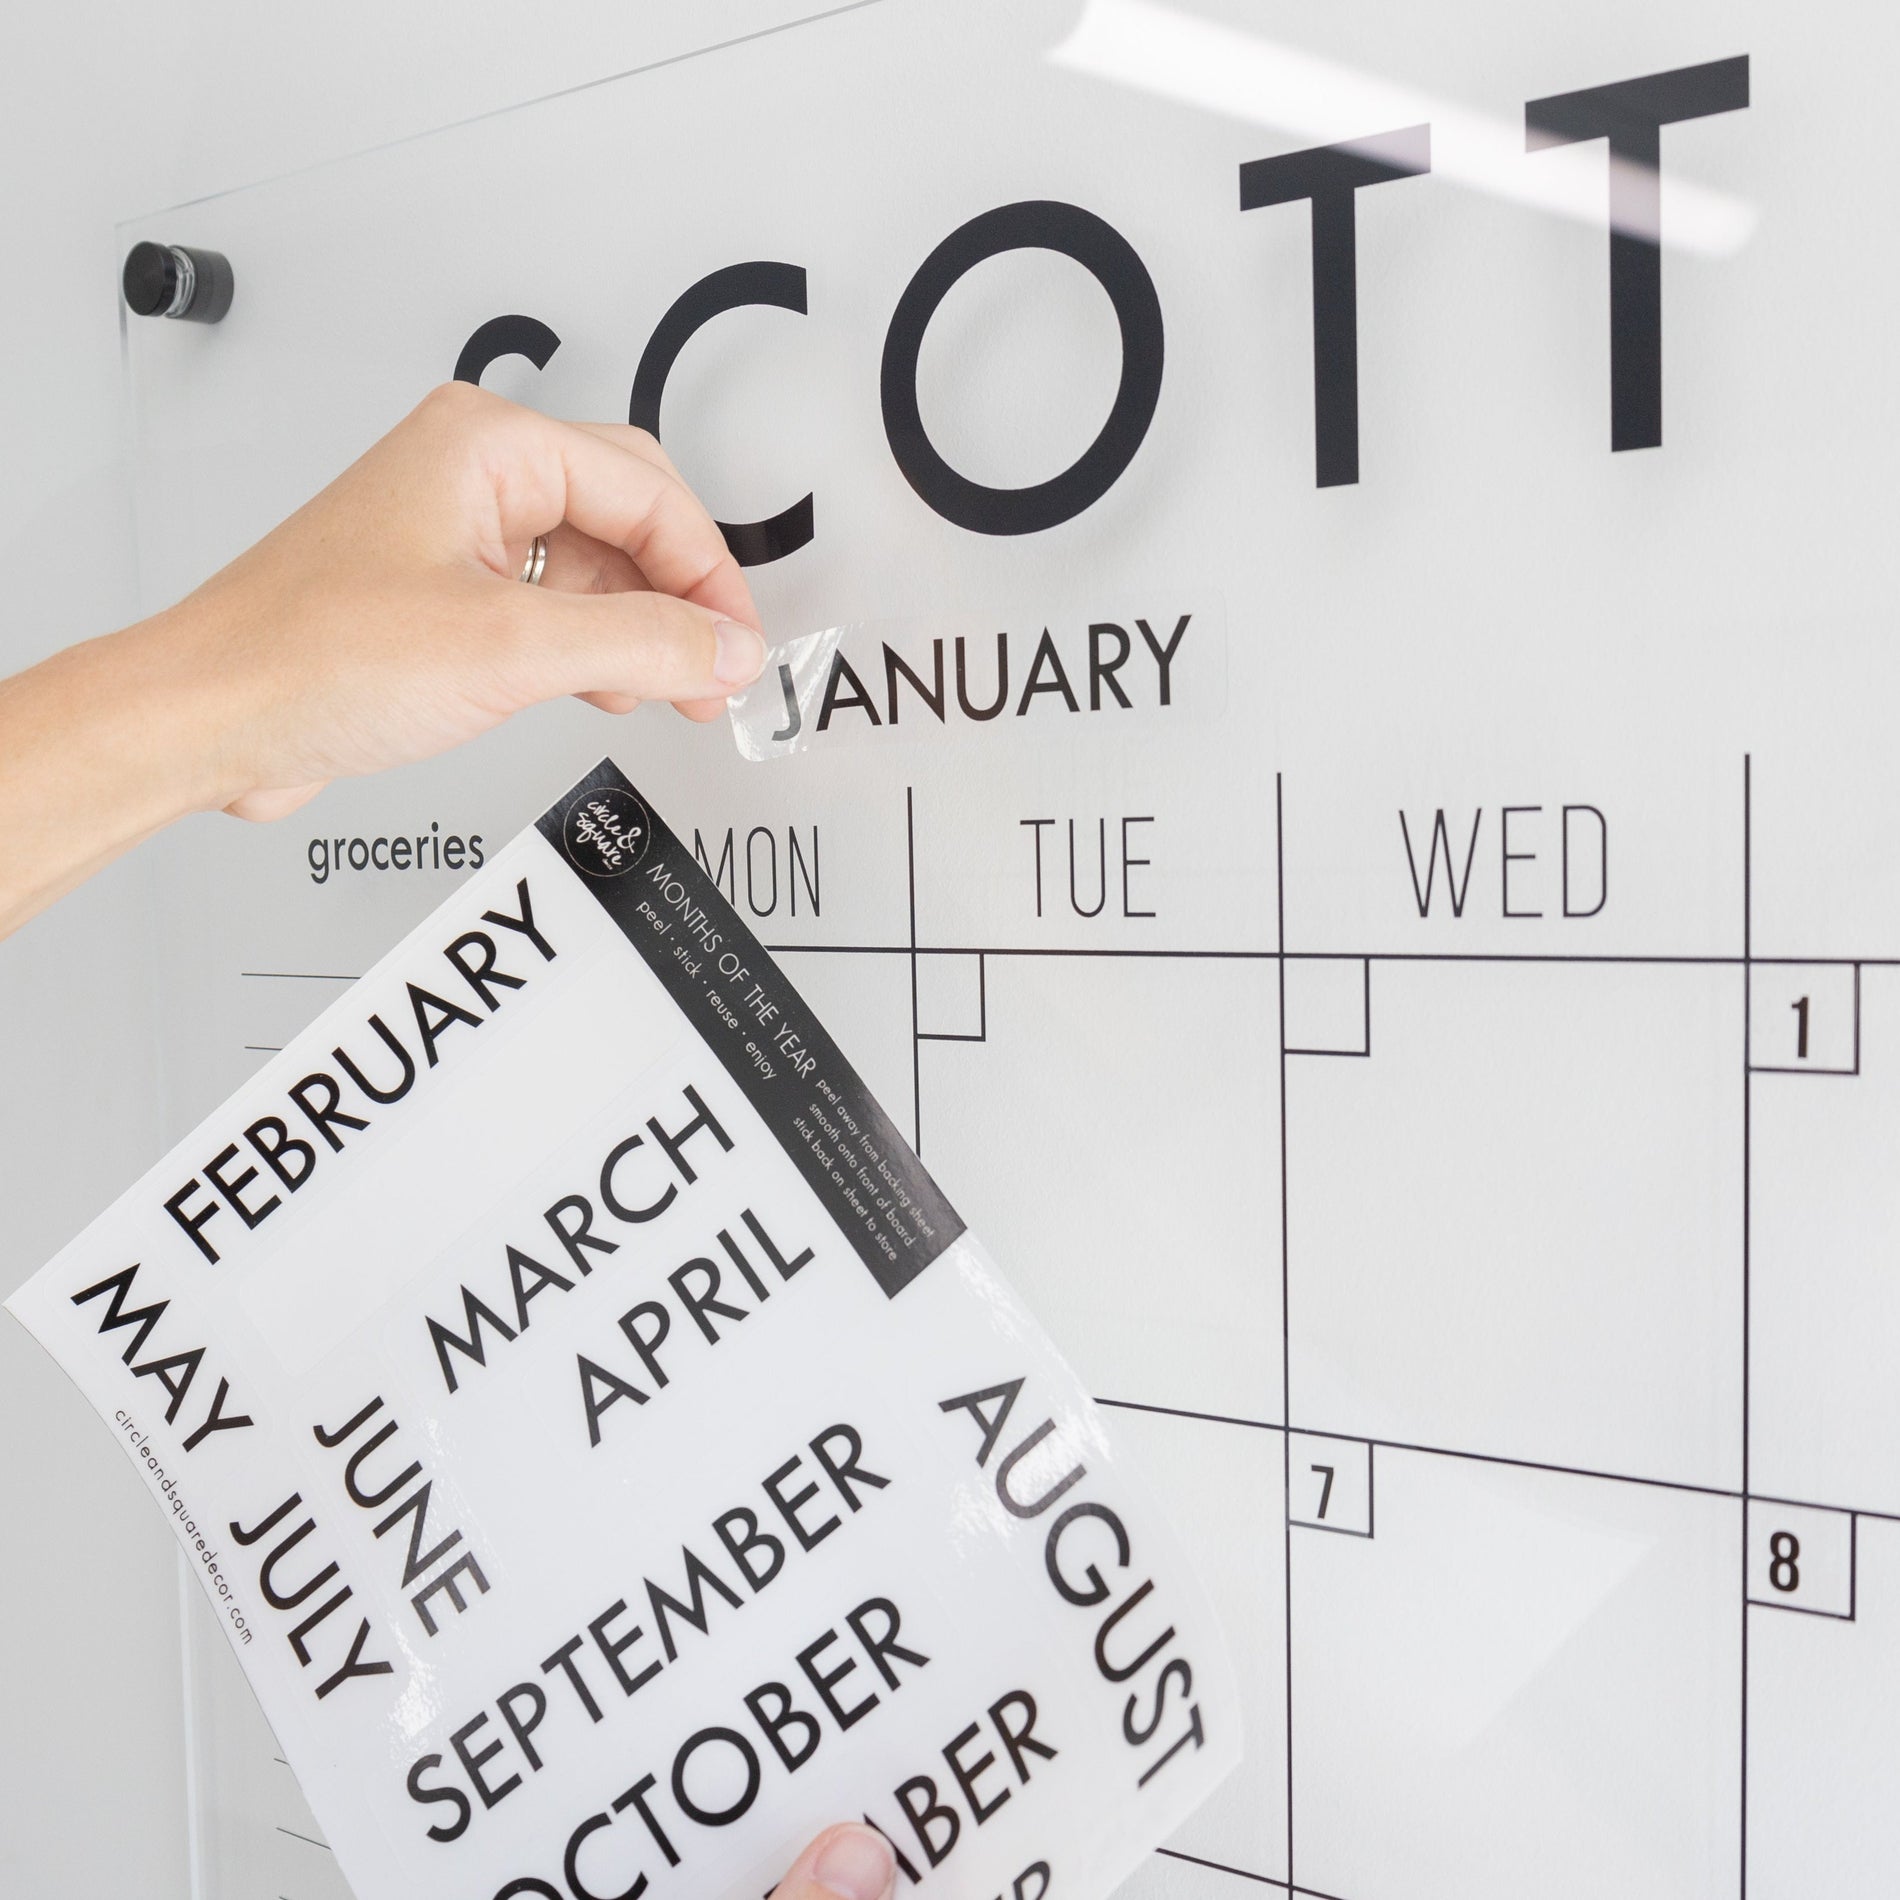 SCOTT
JANUARY
groceries
MON TUE WED
1
7
8
circle &
square
MONTHS OF THE YEAR
peel · stick · reuse · enjoy
peel away from backing sheet
smooth onto front of board
stick back on sheet to store
FEBRUARY
MARCH
APRIL
MAY
JUNE
JULY
AUGUST
SEPTEMBER
OCTOBER
MBER
circleandsquaredecor.com